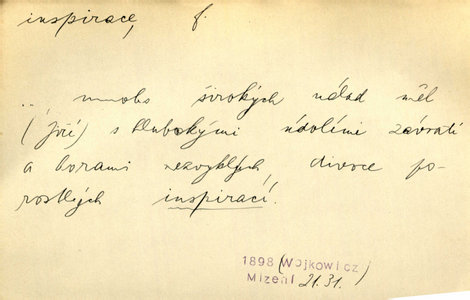 inspirace, f.
.. mnoho širokých nálad měl
(Jiří) s hlubokými údolími závratí
a horami nezvyklých, divoce po-
rostlých inspirací.
1898 (Wojkowicz)
Mizení 21.31.